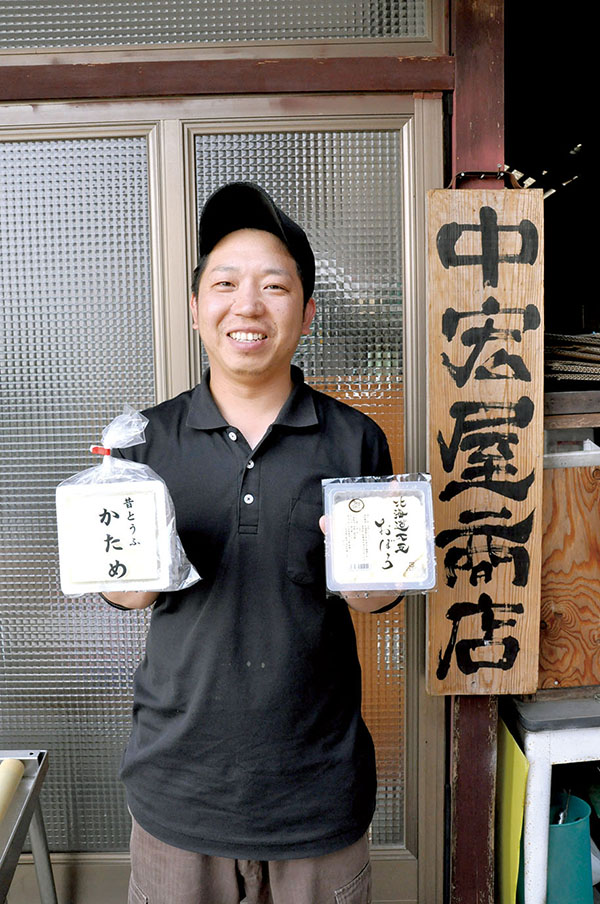 中宏屋商店
昔とうふ
かため
北海道大豆
おぼろ